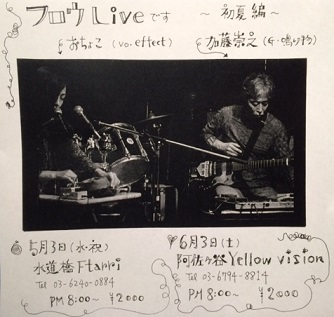 フロウLiveです ~初夏編~
おちょこ (vo・effect) 加藤崇之 (G・鳴り物)
5月3日(水・祝)
水道橋Ftarri
Tel 03-6240-0884
PM 8:00~ ¥2000
6月3日(土)
阿佐ヶ谷Yellow vision
Tel 03-6794-8814
PM 8:00~ ¥2000